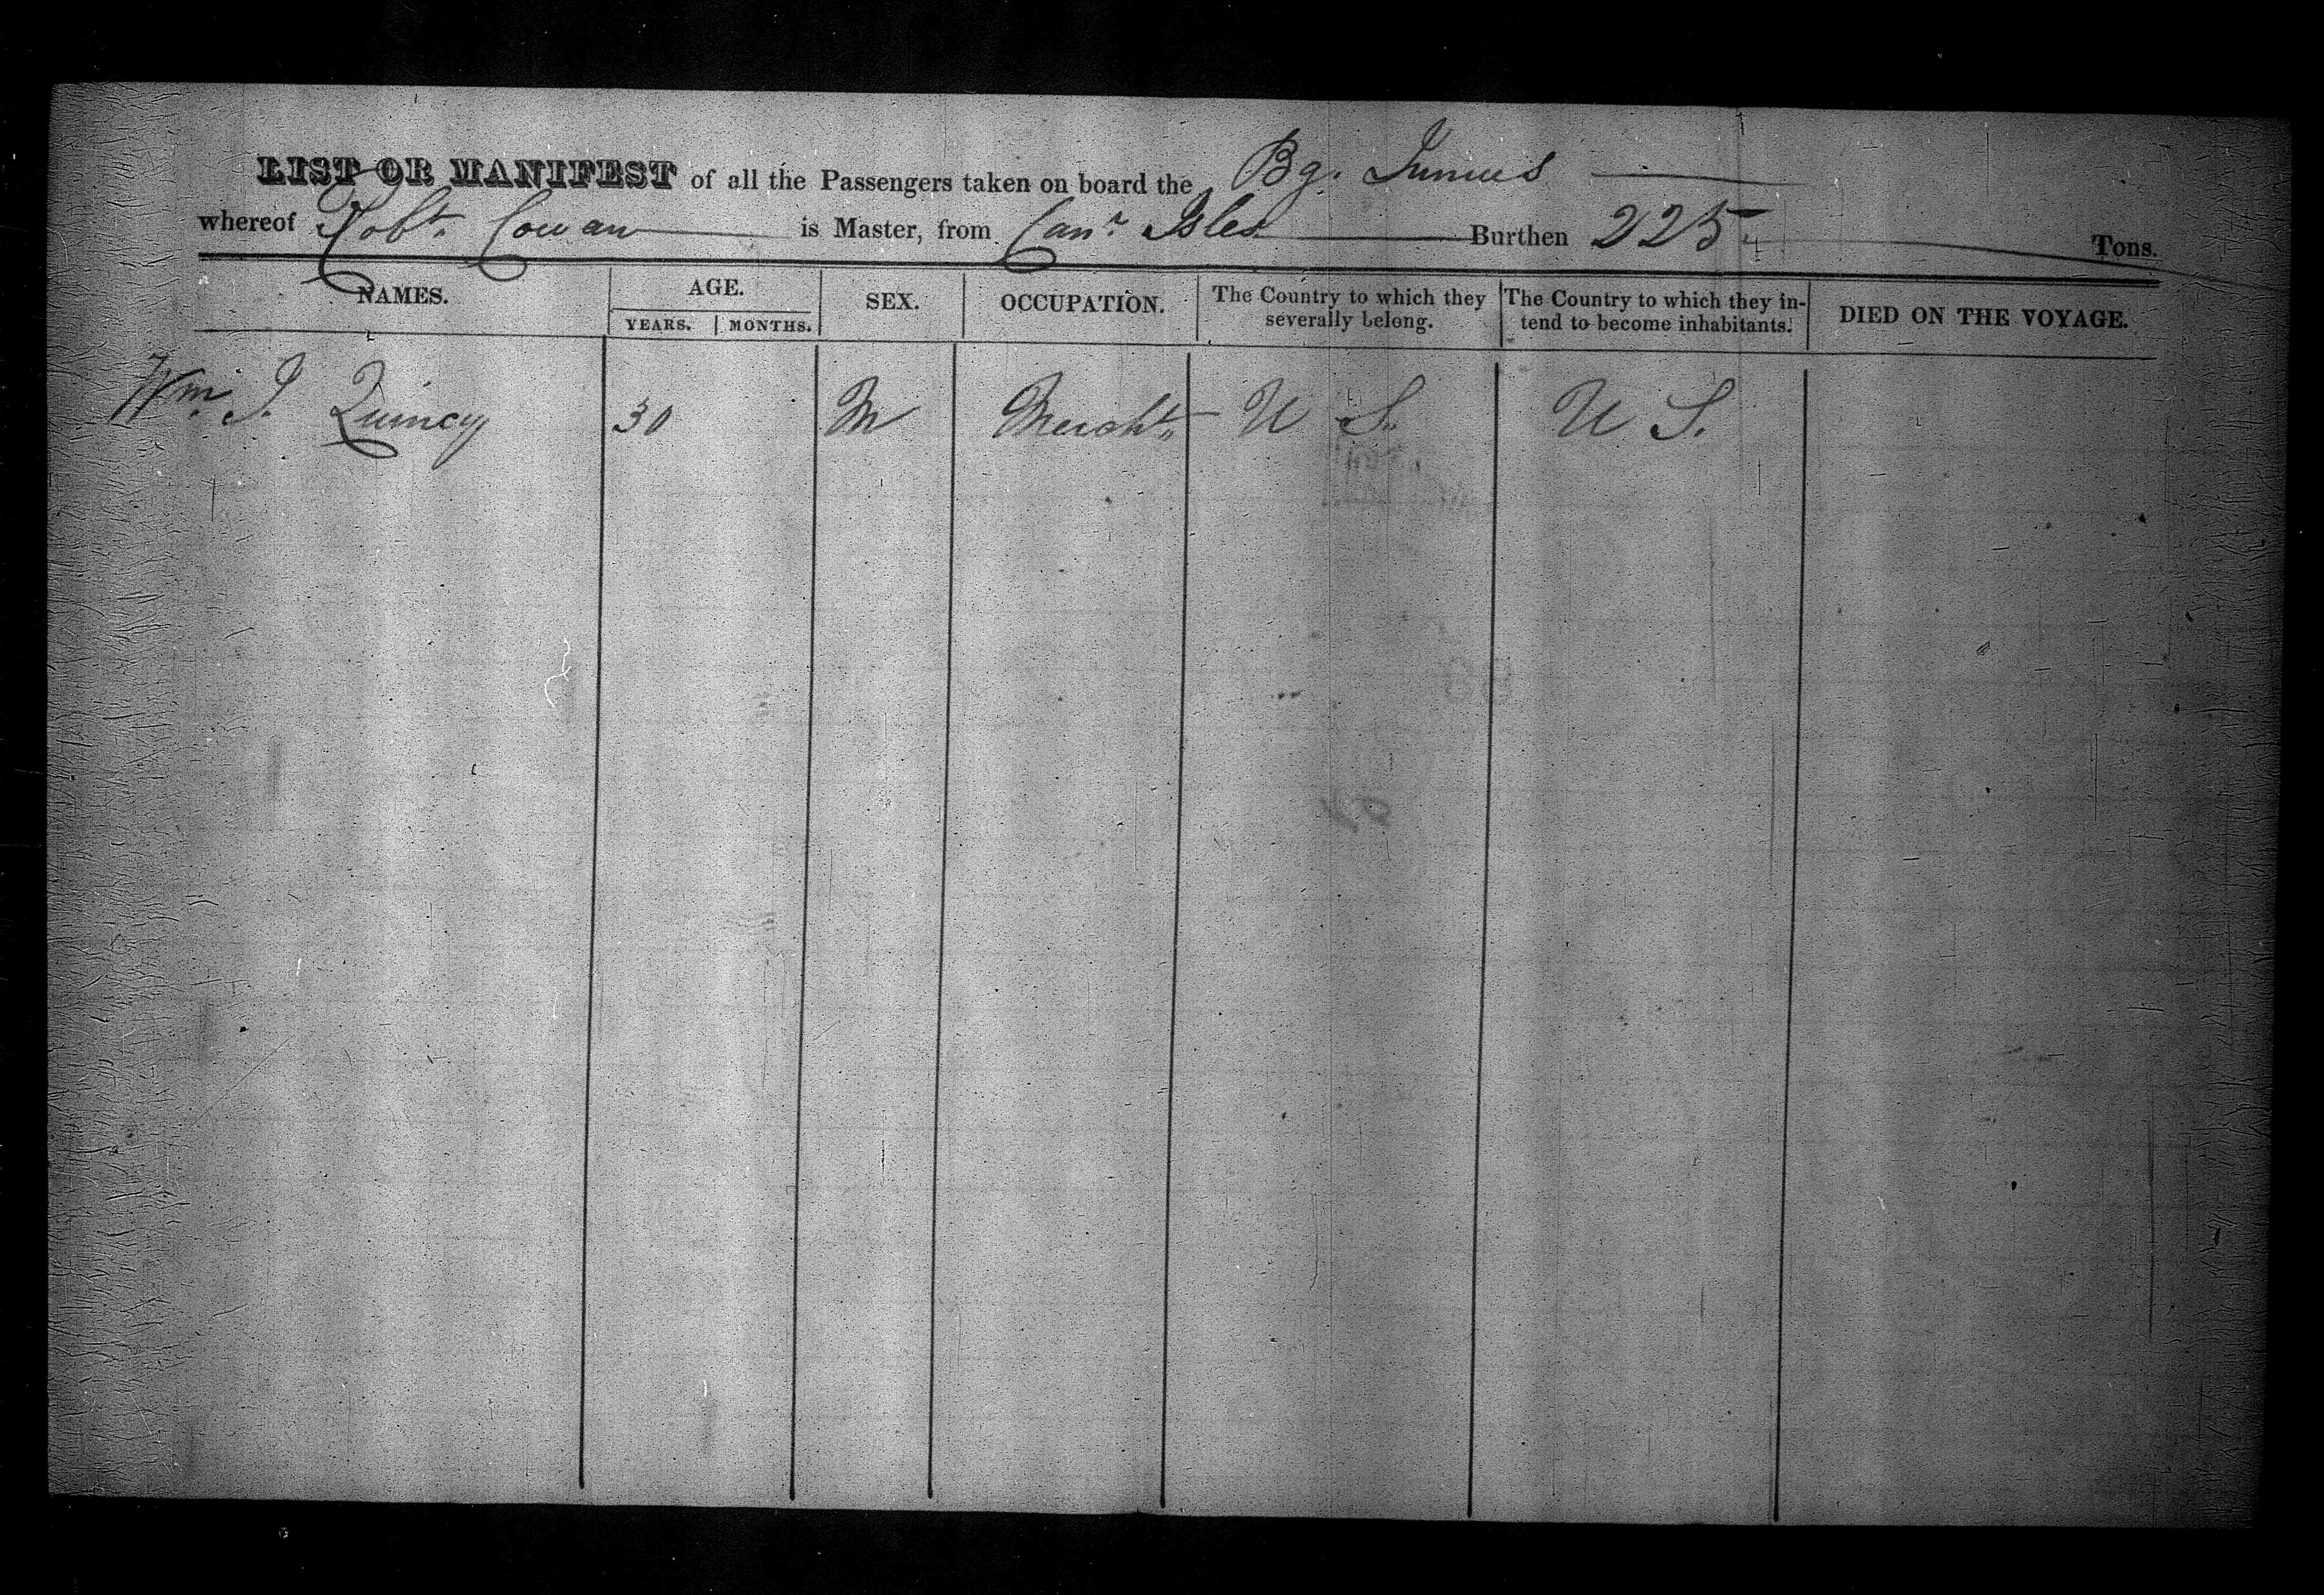 LIST OR MANIFEST of all the Passengers taken on board the Bg. Junius
whereof Robt. Cowan is Master, from Canr Isles Burthen 225 Tons.
NAMES. AGE. SEX. OCCUPATION. The Country to which they severally belong. The Country to which they intend to become inhabitants. DIED ON THE VOYAGE.
YEARS. MONTHS.
Wm. J. Quincy 30 M Mercht. U S. U S.